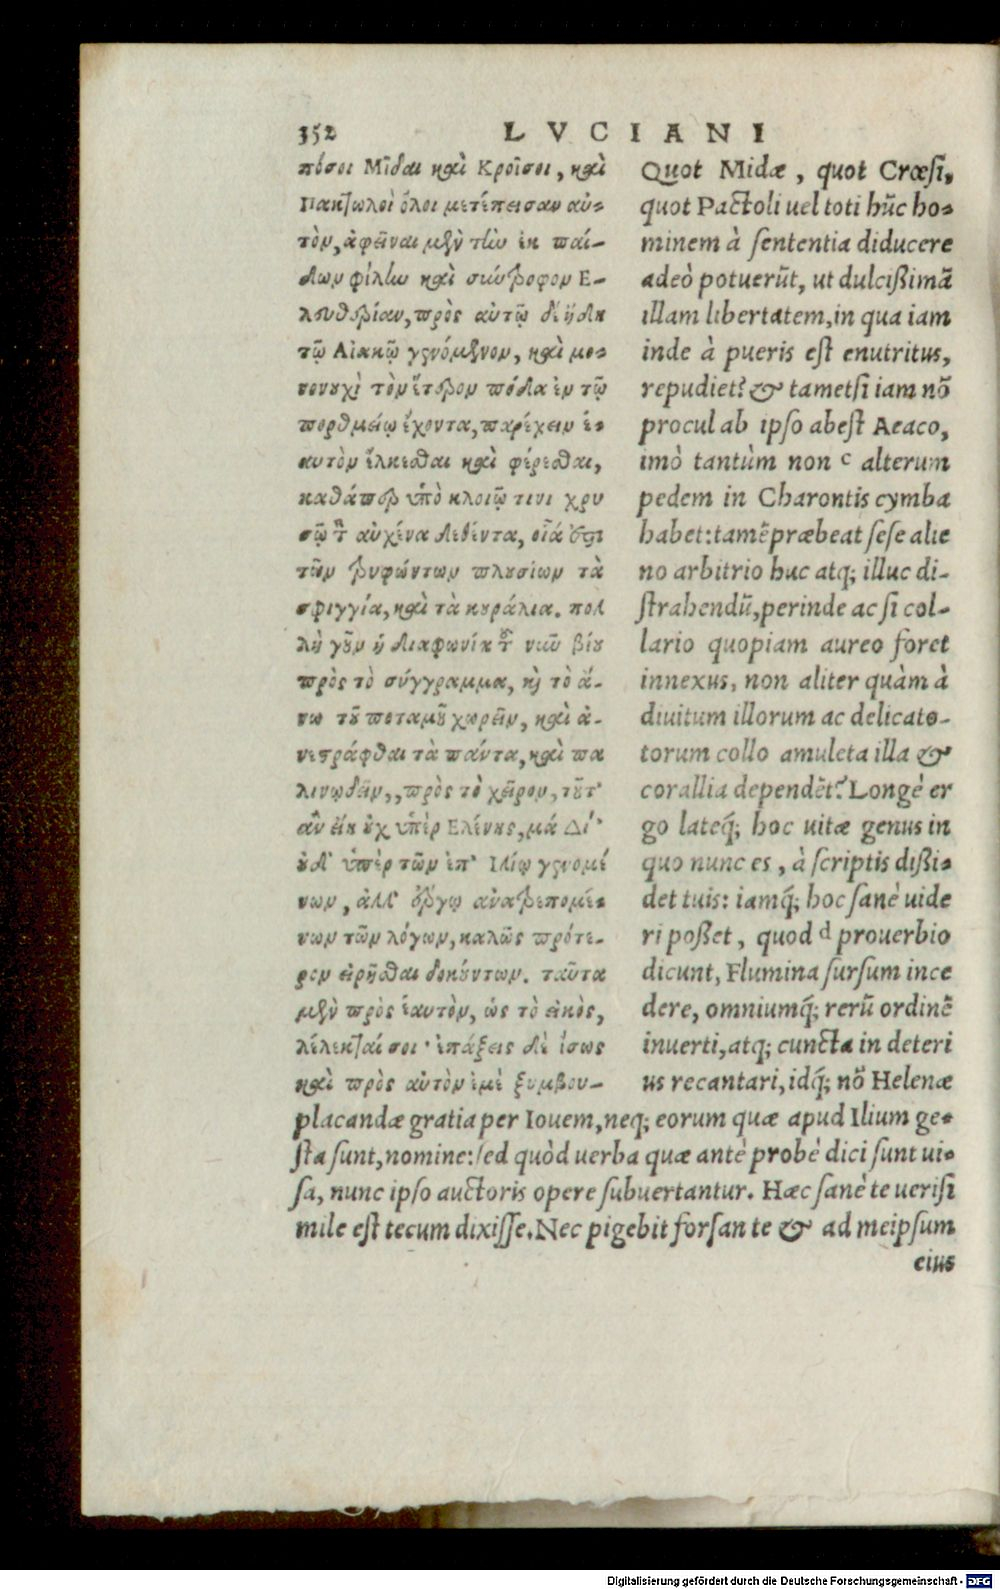 352 LVCIANI
πόσοι Μῖδαι καὶ Κροῖσοι, καὶ
Πακτωλοὶ ὅλοι μετέπεισαν αὐ-
τὸν, ἀφεῖναι μὲν τὴν ἐκ παί-
δων φίλην καὶ σύντροφον Ε-
λευθερίαν, πρὸς αὐτῷ δ' ἤδη
τῷ Αἰακῷ γενόμενον, καὶ μο-
νονουχὶ τὸν ἕτερον πόδα ἐν τῷ
πορθμείῳ ἔχοντα, παρέχειν ἑ-
αυτὸν ἕλκεσθαι καὶ φέρεσθαι,
καθάπερ ὑπὸ κλοιῷ τινι χρυ
σῷ τ αὐχένα δεθέντα, οἷά ἐστι
τῶν τρυφώντων πλουσίων τὰ
σφιγγία, καὶ τὰ κουράλια. πολ
λὴ γοῦν ἡ διαφωνία τ νῦν βίου
πρὸς τὸ σύγγραμμα, κὶ τὸ ἄ-
νω τοῦ ποταμοῦ χωρεῖν, καὶ ἀ-
νεστράφθαι τὰ πάντα, καὶ πα
λινῳδεῖν,, πρὸς τὸ χεῖρον, τοῦτ'
ἂν εἴη οὐχ ὑπὲρ Ελένης, μά Δί'
οὐδ' ὑπὲρ τῶν ἐπ' Ιλίῳ γενομέ
νων, ἀλλ' ἔργῳ ἀνατρεπομέ-
νων τῶν λόγων, καλῶς πρότε-
ρον εἰρῆσθαι δοκούντων. ταῦτα
μὲν πρὸς ἑαυτὸν, ὡς τὸ εἰκὸς,
λέλεκταί σοι· ἐπάξεις δὲ ἴσως
καὶ πρὸς αὐτὸν ἐμὲ ξυμβου-
Quot Midæ, quot Crœsi,
quot Pactoli uel toti hūc ho-
minem à sententia diducere
adeò potuerūt, ut dulcißimā
illam libertatem, in qua iam
inde à pueris est enutritus,
repudiet? & tametsi iam nō
procul ab ipso abest Aeaco,
imò tantùm non c alterum
pedem in Charontis cymba
habet: tamē præbeat sese alie
no arbitrio huc atq; illuc di-
strahendū, perinde ac si col-
lario quopiam aureo foret
innexus, non aliter quàm à
diuitum illorum ac delicato-
torum collo amuleta illa &
corallia dependēt? Longè er
go lateq́; hoc uitæ genus in
quo nunc es, à scriptis dißi-
det tuis: iamq́; hoc sanè uide
ri poßet, quod d prouerbio
dicunt, Flumina sursum ince
dere, omniumq́; rerū ordinē
inuerti, atq; cuncta in deteri
us recantari, idq́; nō Helenæ
placandæ gratia per Iouem, neq; eorum quæ apud Ilium ge-
sta sunt, nomine: sed quòd uerba quæ antè probè dici sunt ui-
sa, nunc ipso auctoris opere subuertantur. Hæc sanè te uerisi
mile est tecum dixisse. Nec pigebit forsan te & ad meipsum
eius
Digitalisierung gefördert durch die Deutsche Forschungsgemeinschaft - DFG